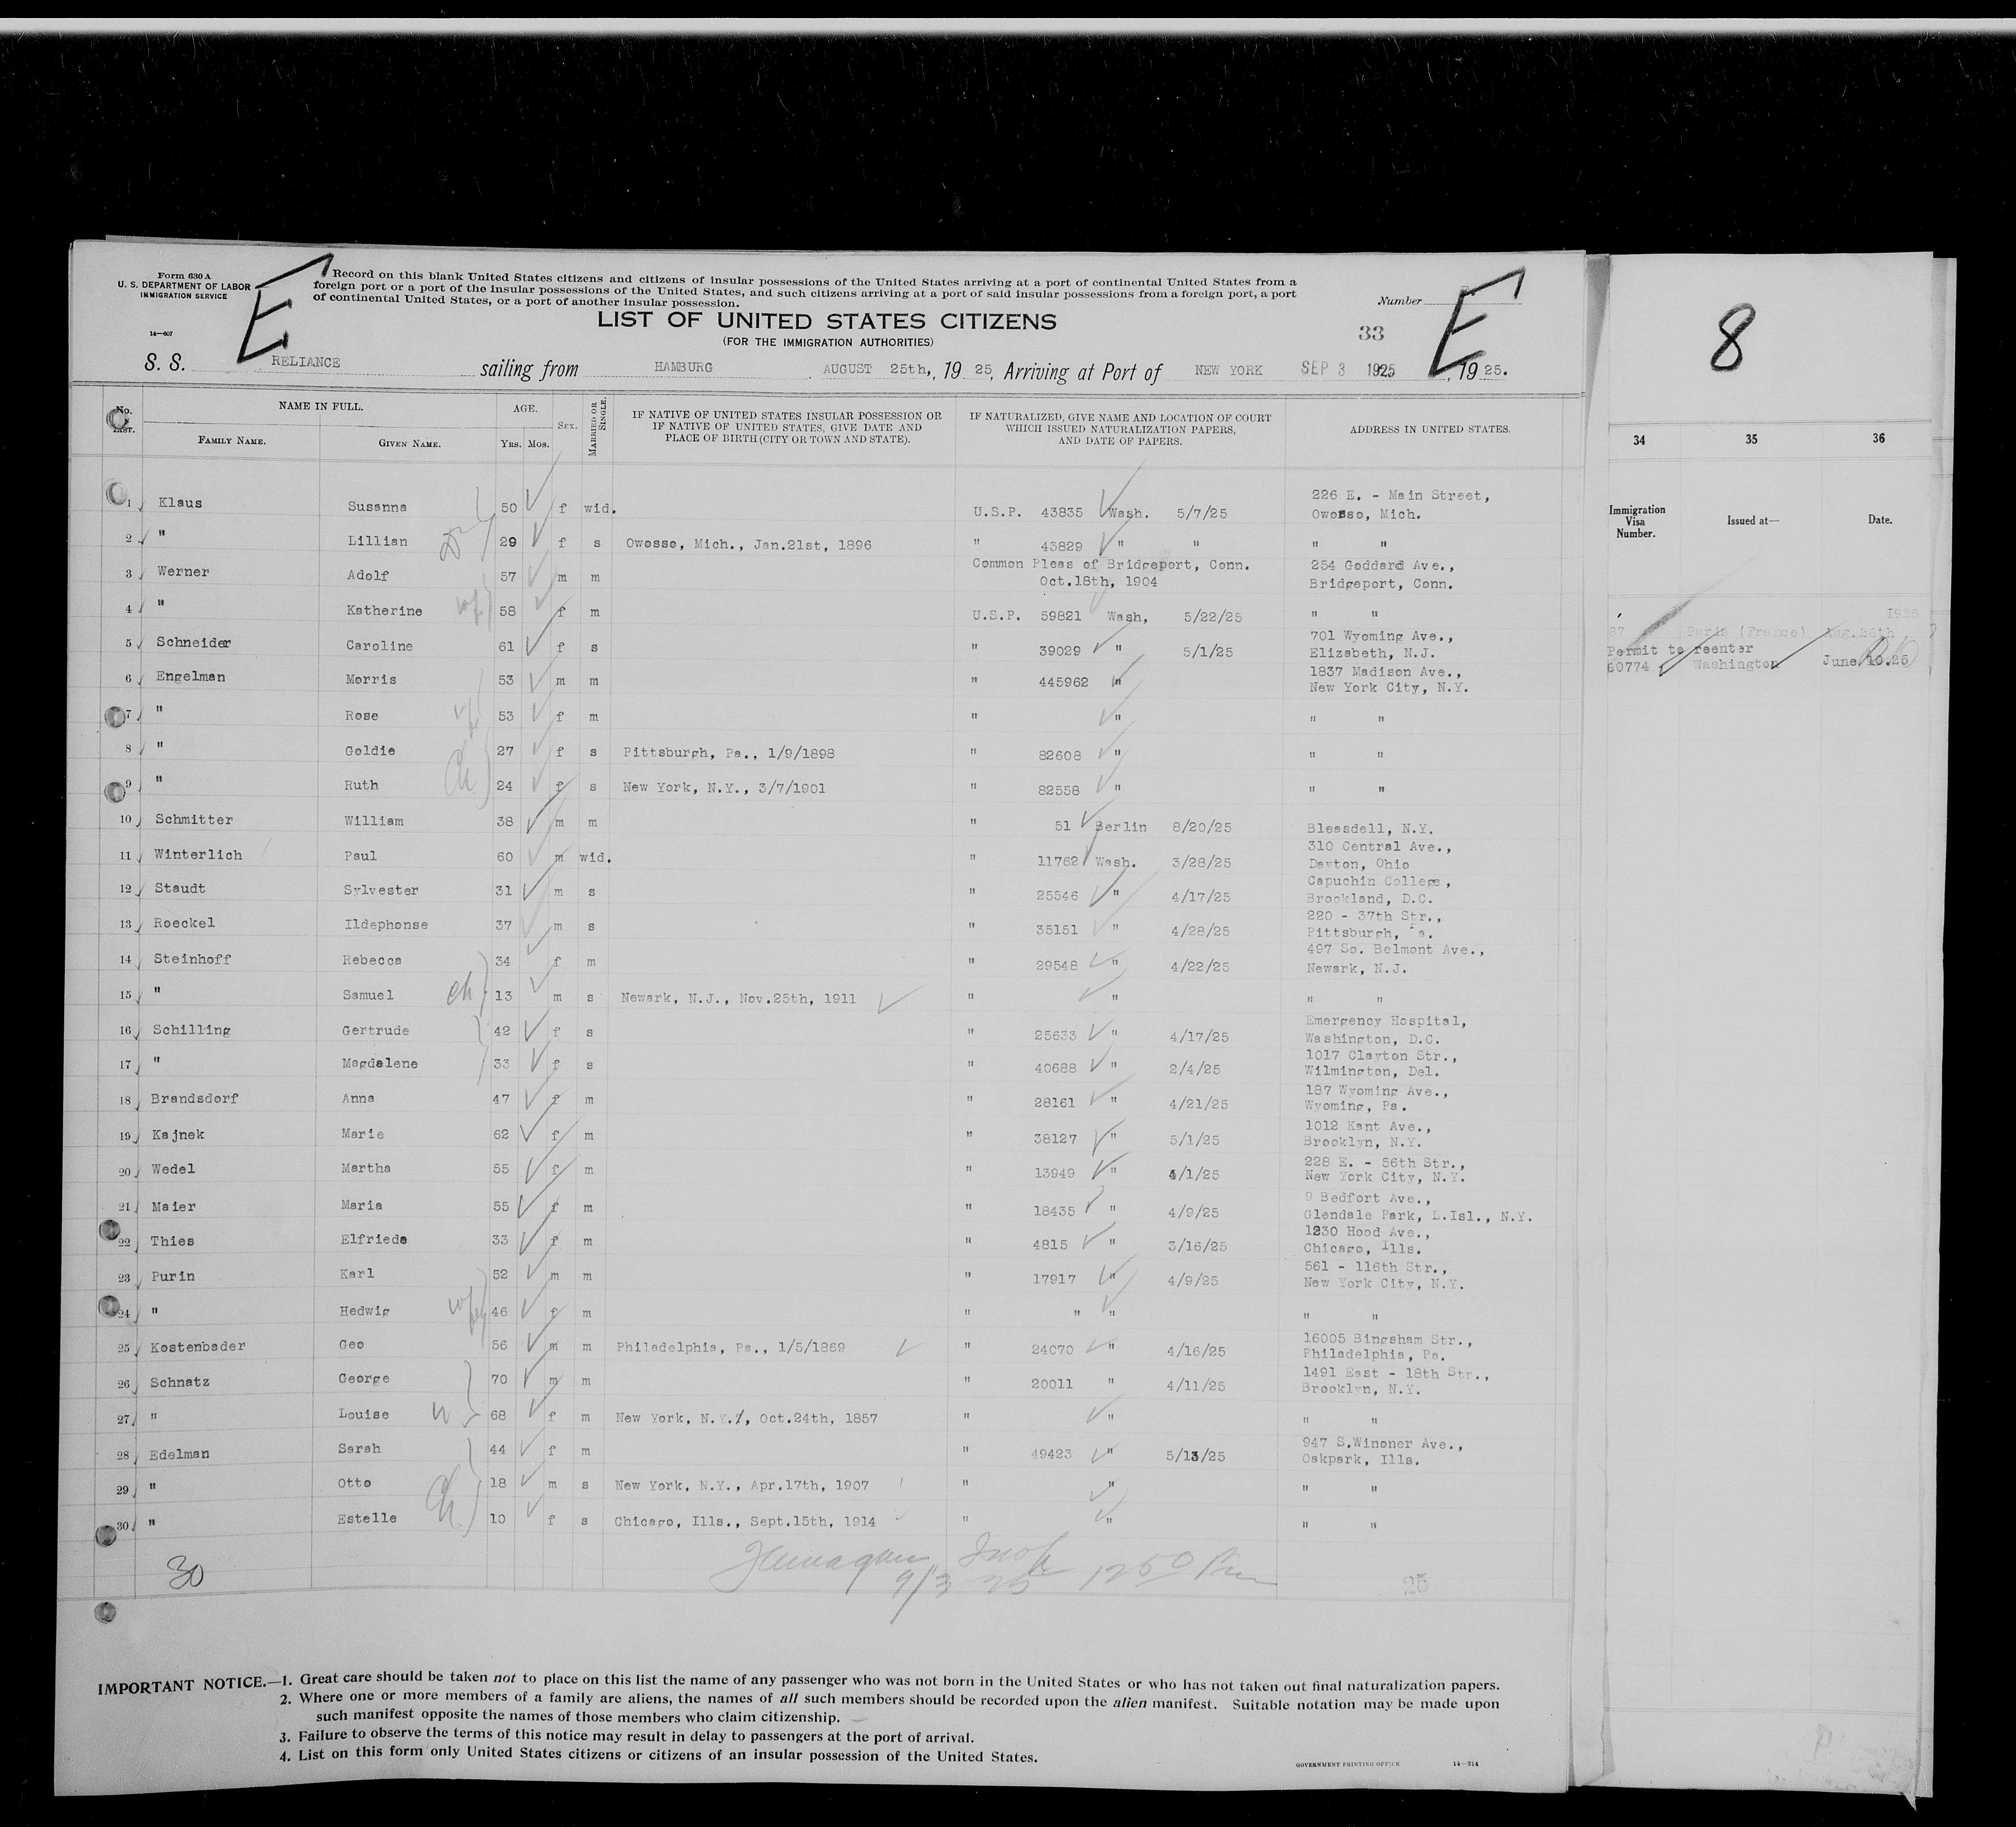 Form 630 A
U. S. DEPARTMENT OF LABOR
IMMIGRATION SERVICE
14—607
E
Record on this blank United States citizens and citizens of insular possessions of the United States arriving at a port of continental United States from a
foreign port or a port of the insular possessions of the United States, and such citizens arriving at a port of said insular possessions from a foreign port, a port
of continental United States, or a port of another insular possession.
Number
E
LIST OF UNITED STATES CITIZENS
(FOR THE IMMIGRATION AUTHORITIES)
33
S. S. RELIANCE sailing from HAMBURG AUGUST 25th, 19 25, Arriving at Port of NEW YORK SEP 3 1925, 19 25.
No. LIST. NAME IN FULL. AGE. SEX. MARRIED OR SINGLE. IF NATIVE OF UNITED STATES INSULAR POSSESSION OR IF NATIVE OF UNITED STATES, GIVE DATE AND PLACE OF BIRTH (CITY OR TOWN AND STATE). IF NATURALIZED, GIVE NAME AND LOCATION OF COURT WHICH ISSUED NATURALIZATION PAPERS, AND DATE OF PAPERS. ADDRESS IN UNITED STATES.
FAMILY NAME. GIVEN NAME. YRS. MOS.
1 Klaus Susanna 50 f wid. U.S.P. 43835 Wash. 5/7/25 226 E. - Main Street, Owosso, Mich.
2 " Lillian 29 f s Owosso, Mich., Jan.21st, 1896 " 43829 " " " "
3 Werner Adolf 57 m m Common Pleas of Bridgeport, Conn. Oct.18th, 1904 254 Goddard Ave., Bridgeport, Conn.
4 " Katherine wf 58 f m U.S.P. 59821 Wash, 5/22/25 " "
5 Schneider Caroline 61 f s " 39029 " 5/1/25 701 Wyoming Ave., Elizabeth, N.J.
6 Engelman Morris 53 m m " 445962 " 1837 Madison Ave., New York City, N.Y.
7 " Rose wf 53 f m " " " "
8 " Goldie 27 f s Pittsburgh, Pa., 1/9/1898 " 82608 " " "
9 " Ruth Ch 24 f s New York, N.Y., 3/7/1901 " 82558 " " "
10 Schmitter William 38 m m " 51 Berlin 8/20/25 Blessdell, N.Y.
11 Winterlich Paul 60 m wid. " 11762 Wash. 3/28/25 310 Central Ave., Dayton, Ohio
12 Staudt Sylvester 31 m s " 25546 " 4/17/25 Capuchin College, Brookland, D.C.
13 Roeckel Ildephonse 37 m s " 35151 " 4/28/25 220 - 37th Str., Pittsburgh, Pa.
14 Steinhoff Rebecca 34 f m " 29548 " 4/22/25 497 So. Belmont Ave., Newark, N.J.
15 " Samuel ch 13 m s Newark, N.J., Nov.25th, 1911 " " " "
16 Schilling Gertrude 42 f s " 25633 " 4/17/25 Emergency Hospital, Washington, D.C.
17 " Magdalene 33 f s " 40688 " 2/4/25 1017 Clayton Str., Wilmington, Del.
18 Brandsdorf Anna 47 f m " 28161 " 4/21/25 187 Wyoming Ave., Wyoming, Pa.
19 Kajnek Marie 62 f m " 38127 " 5/1/25 1012 Kant Ave., Brooklyn, N.Y.
20 Wedel Martha 55 f m " 13949 " 4/1/25 228 E. - 56th Str., New York City, N.Y.
21 Maier Maria 55 f m " 18435 " 4/9/25 9 Bedfort Ave., Glendale Park, L.Isl., N.Y.
22 Thies Elfrieda 33 f m " 4815 " 3/16/25 1230 Hood Ave., Chicago, Ills.
23 Purin Karl 52 m m " 17917 " 4/9/25 561 - 116th Str., New York City, N.Y.
24 " Hedwig wf 46 f m " " " " "
25 Kostenbader Geo 56 m m Philadelphia, Pa., 1/5/1869 " 24070 " 4/16/25 16005 Bingsham Str., Philadelphia, Pa.
26 Schnatz George 70 m m " 20011 " 4/11/25 1491 East - 18th Str., Brooklyn, N.Y.
27 " Louise w 68 f m New York, N.Y., Oct.24th, 1857 " " " "
28 Edelman Sarah 44 f m " 49423 " 5/13/25 947 S.Winoner Ave., Oakpark, Ills.
29 " Otto 18 m s New York, N.Y., Apr.17th, 1907 " " " "
30 " Estelle Ch 10 f s Chicago, Ills., Sept.15th, 1914 " " " "
30
9/3 25 12 50 Pm
25
IMPORTANT NOTICE.—1. Great care should be taken not to place on this list the name of any passenger who was not born in the United States or who has not taken out final naturalization papers.
2. Where one or more members of a family are aliens, the names of all such members should be recorded upon the alien manifest. Suitable notation may be made upon
such manifest opposite the names of those members who claim citizenship.
3. Failure to observe the terms of this notice may result in delay to passengers at the port of arrival.
4. List on this form only United States citizens or citizens of an insular possession of the United States.
GOVERNMENT PRINTING OFFICE 14—314
8
34 35 36
Immigration Visa Number. Issued at— Date.
1925
87 Paris (France) Aug.26th
Permit to reenter
60774 Washington June 10.25